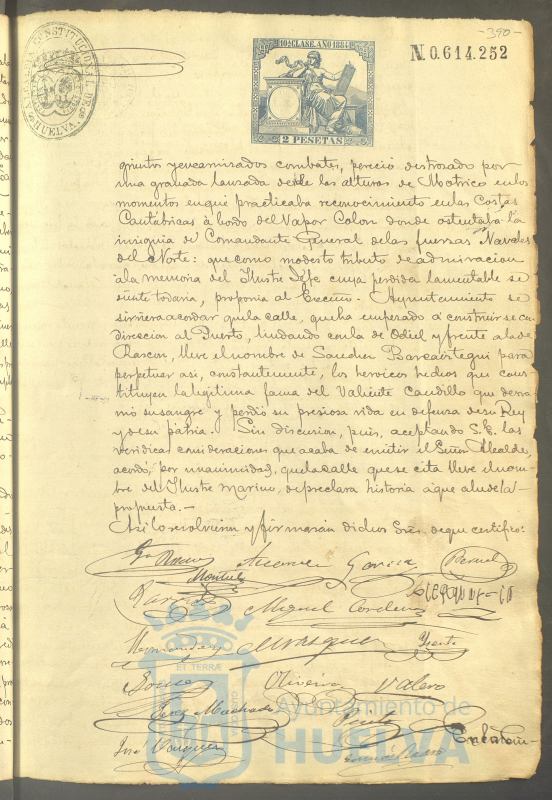 -390-
10ª CLASE. AÑO 1884
N0.614.252
2 PESETAS
ALCALDIA CONSTITUCIONAL DE HUELVA
grientos y encarnizados combates, pereció destrosado por
una granada lanzada desde las alturas de Motrico en los
momentos en que practicaba reconocimiento en las Costas
Cantábricas á bordo del Vapor Colon donde ostentaba la
insignia de Comandante General de las fuerzas Navales
del Norte: que como modesto tributo de admiracion
á la memoria del Ilustre Jefe cuya perdida lamentable se
siente todavia, proponia al Excmo. Ayuntamiento se
sirviera acordar que la calle, que ha empesado á construirse en
direccion al Puerto, lindando con la de Odiel y frente á la de
Rascon, lleve el nombre de Sanchez Barcaiztegui para
perpetuar asi, constantemente, los heroicos hechos que cons-
tituyen la legitima fama del Valiente Caudillo que derra-
mó su sangre y perdió su presiosa vida en defensa de su Rey
y de su pátria. Sin discusion, pues, aceptando S.E. las
veridicas consideraciones que acaba de emitir el Señor Alcalde,
acordó, por unanimidad, que la calle que se cita lleve el nom-
bre del Ilustre Marino, de preclara historia á que alude la
propuesta.-
Asi lo resolvieron y firmarán dichos Sres. de que certifico:
Garcia Bernal
Montiel
Miguel Cordero
Hernandez Vazquez
Oliveira Valero
Machado
José Vazquez
ET TERRÆ
Ayuntamiento de
HUELVA